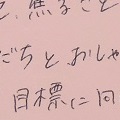 、焦ること
だちと、おしゃ
目標に向